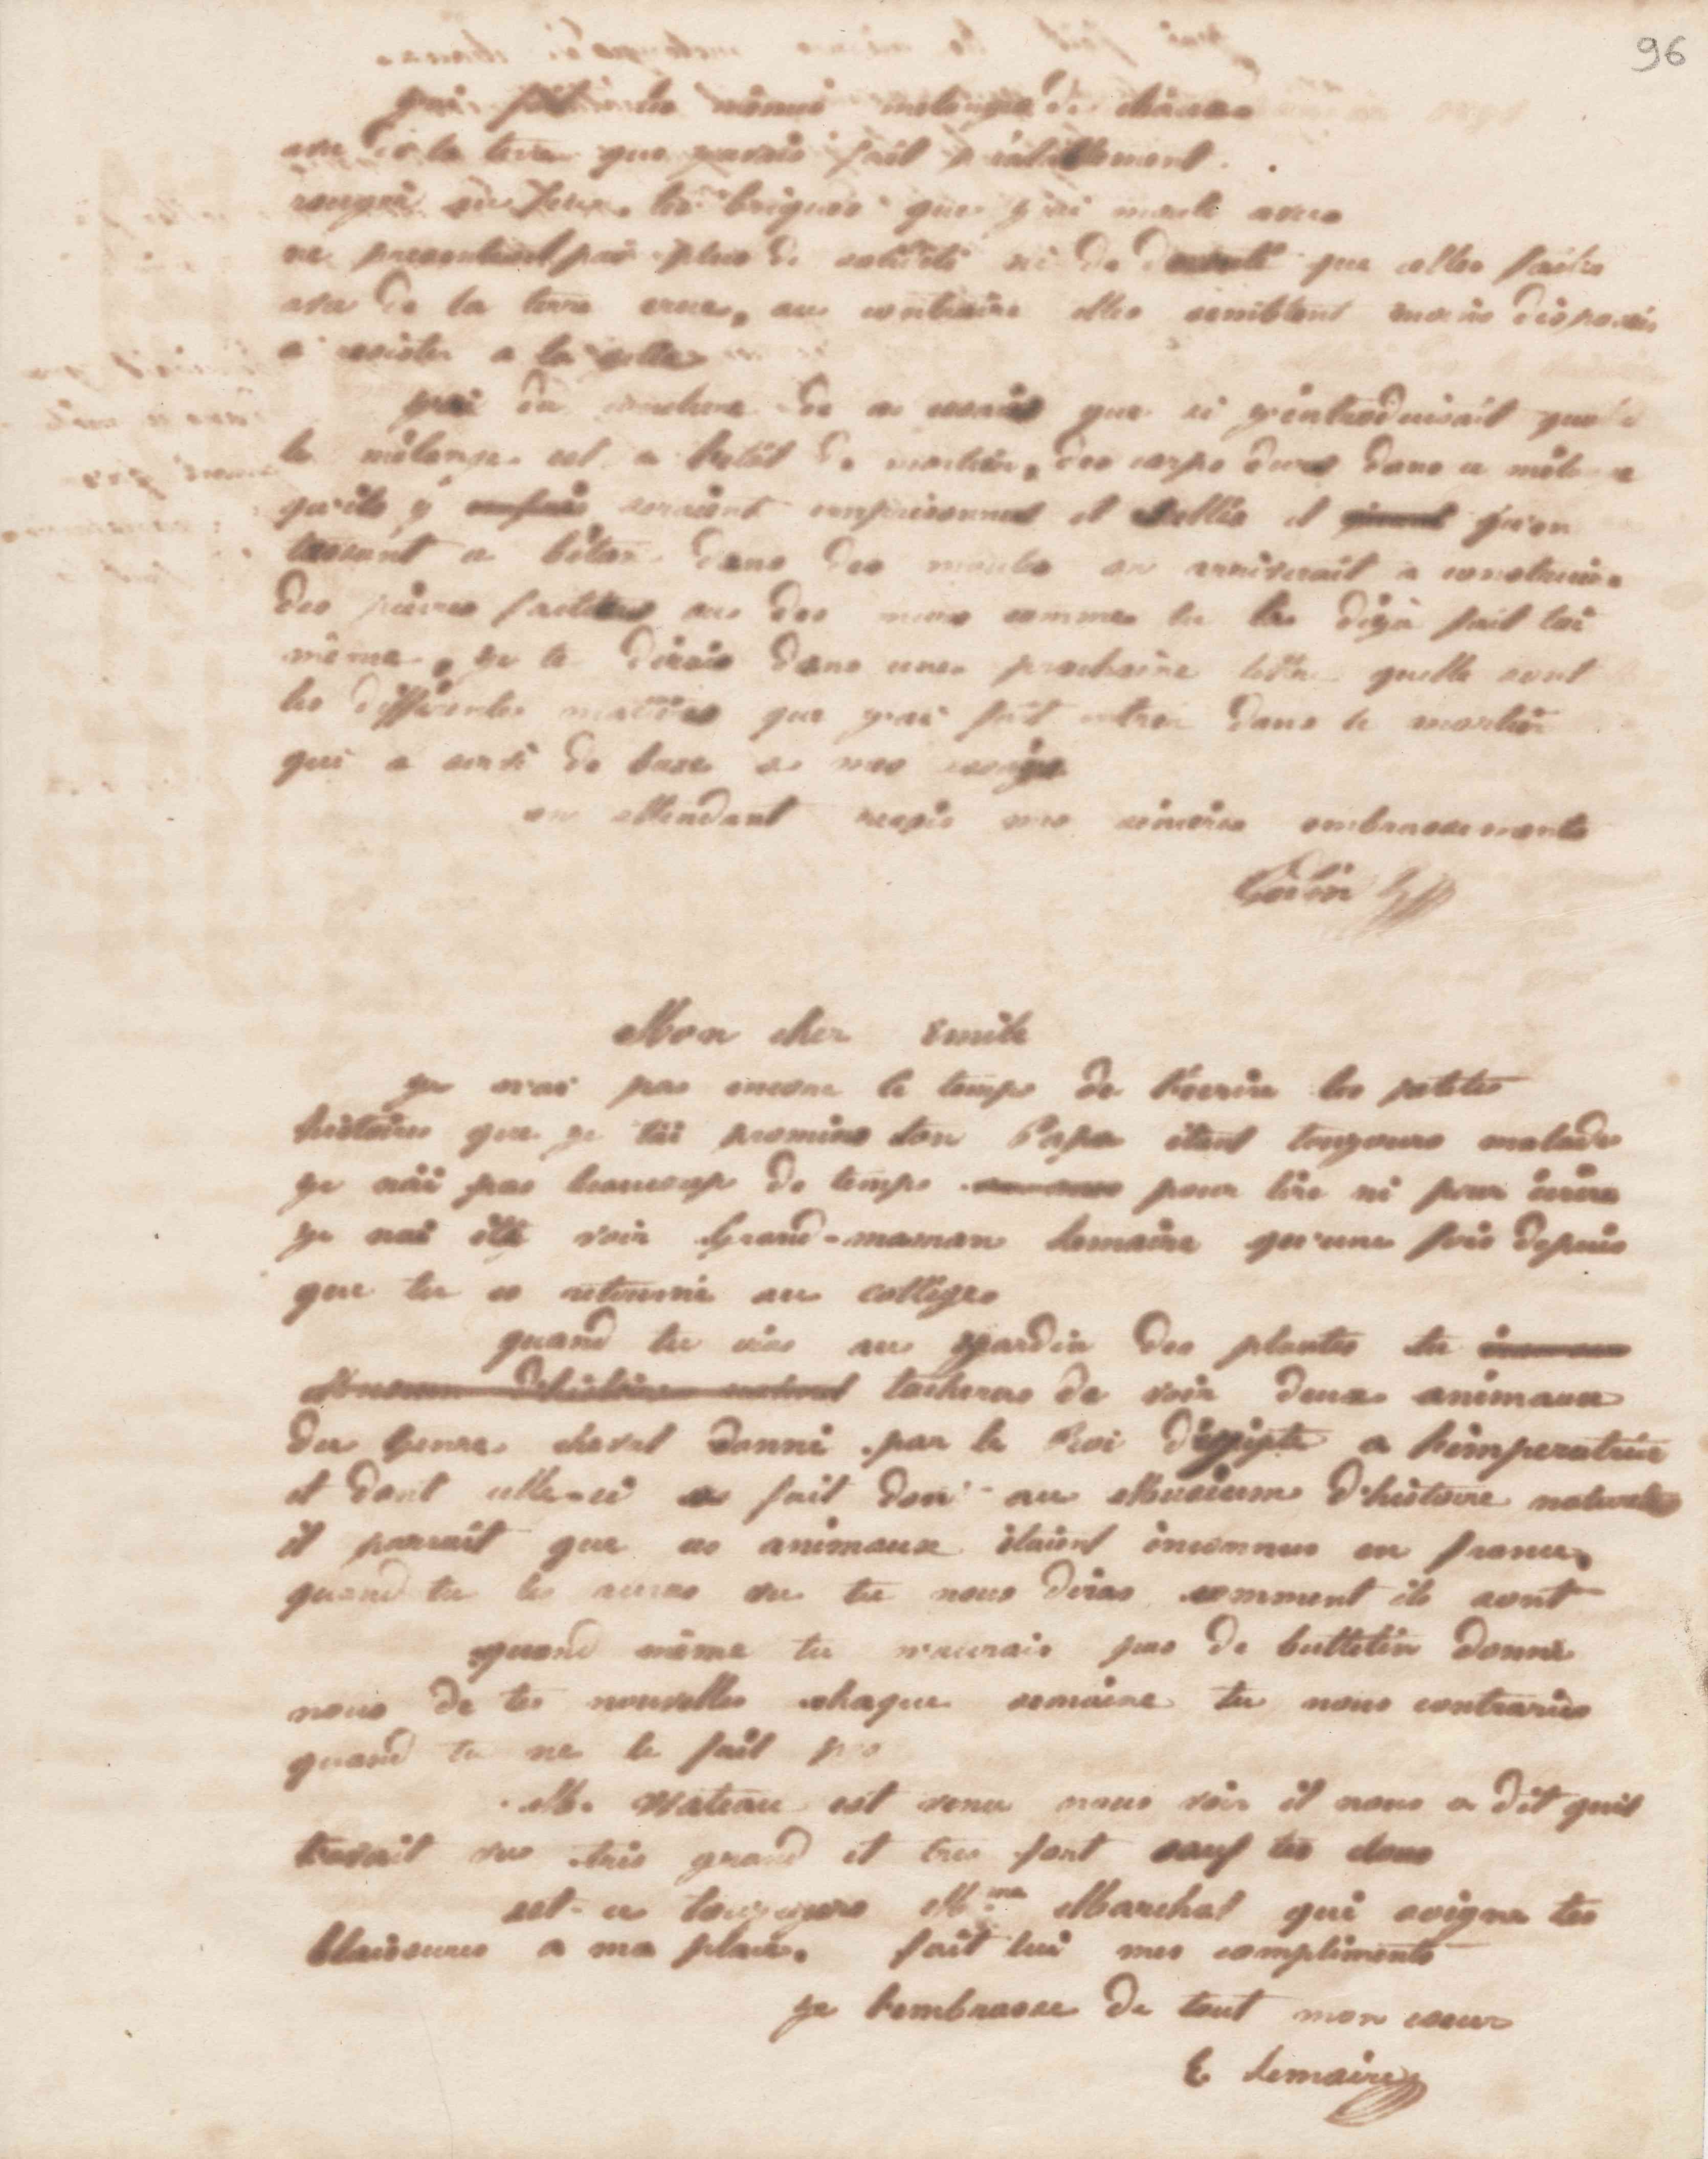 96
j'ai fait les mêmes melanges de chaux
avec de la terre que j'avais fait préalablement
rougir au feu, les briques que j'ai moulé avec
ne presentent pas plus de solidité ni de dureté que celles faites
avec de la terre crue, au contraire elles semblent moins disposées
a resister a la gelée
j'ai du conclure de ces essais que si j'introduisait quand
le mélange est a l'état de mortier, des corps durs dans ce mélange
qu'ils y seraient emprisonnés et scellés et qu'en
tassant ce béton dans des moules on arriverait a construire
des pierres factices ou des murs comme tu l'as déjà fait toi
même, je te dirais dans une prochaine lettre quelle sont
les differentes matières que j'ai fait entrer dans le mortier
qui a servi de base a mes essais
en attendant reçois mes sincères embrassements
Godin
Mon cher Emile
je n'ai pas encore le temps de t'écrire les petites
histoires que je t'ai promises ton Papa étant toujours malade
je n'ai pas beaucoup de temps pour lire ni pour écrire
je n'ai été voir Grand-maman Lemaire qu'une fois depuis
que tu es retourné au collège
quand tu iras au jardin des plantes tu
Museum d'histoire naturel tacheras de voir deux animaux
du genre cheval donné par le Roi d'egipte a l'imperatrice
et dont celle-ci a fait don au Museium d'histoire naturel
il parrait que ces animaux étaient inconnus en france,
quand tu les auras vu tu nous diras comment ils sont
quand même tu n'aurais pas de bulletin donne
nous de tes nouvelles chaque semaine tu nous contraries
quand tu ne le fait pas
M. Wateau est venu nous voir il nous a dit qu'il
t'avait vu très grand et tres fort sauf tes clous
est-ce toujours Mme Marchal qui soigne tes
blaissures a ma place, fait lui mes compliments
je t'embrasse de tout mon coeur
E Lemaire